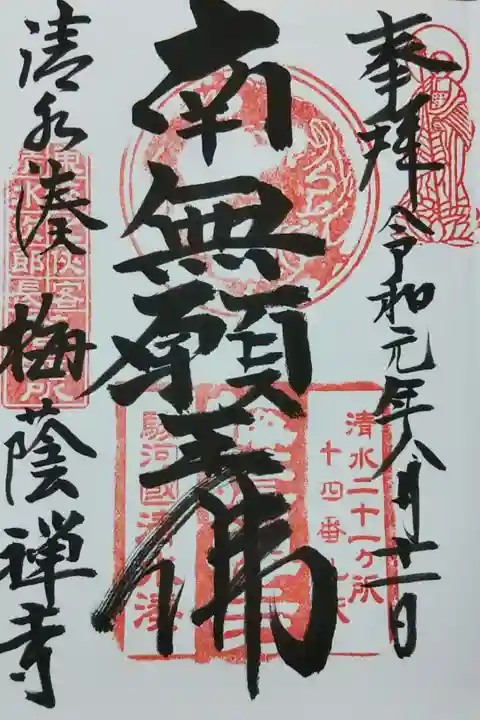 奉拝 令和元年八月十一日
南無願王佛
清水湊 梅蔭禅寺
清水二十一ヶ所
十四番
駿河國清水湊